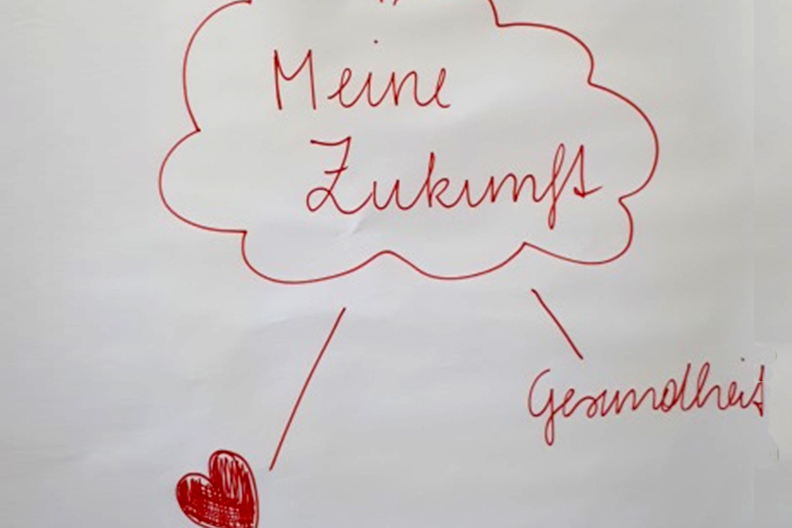 Meine
Zukunft
Gesundheit